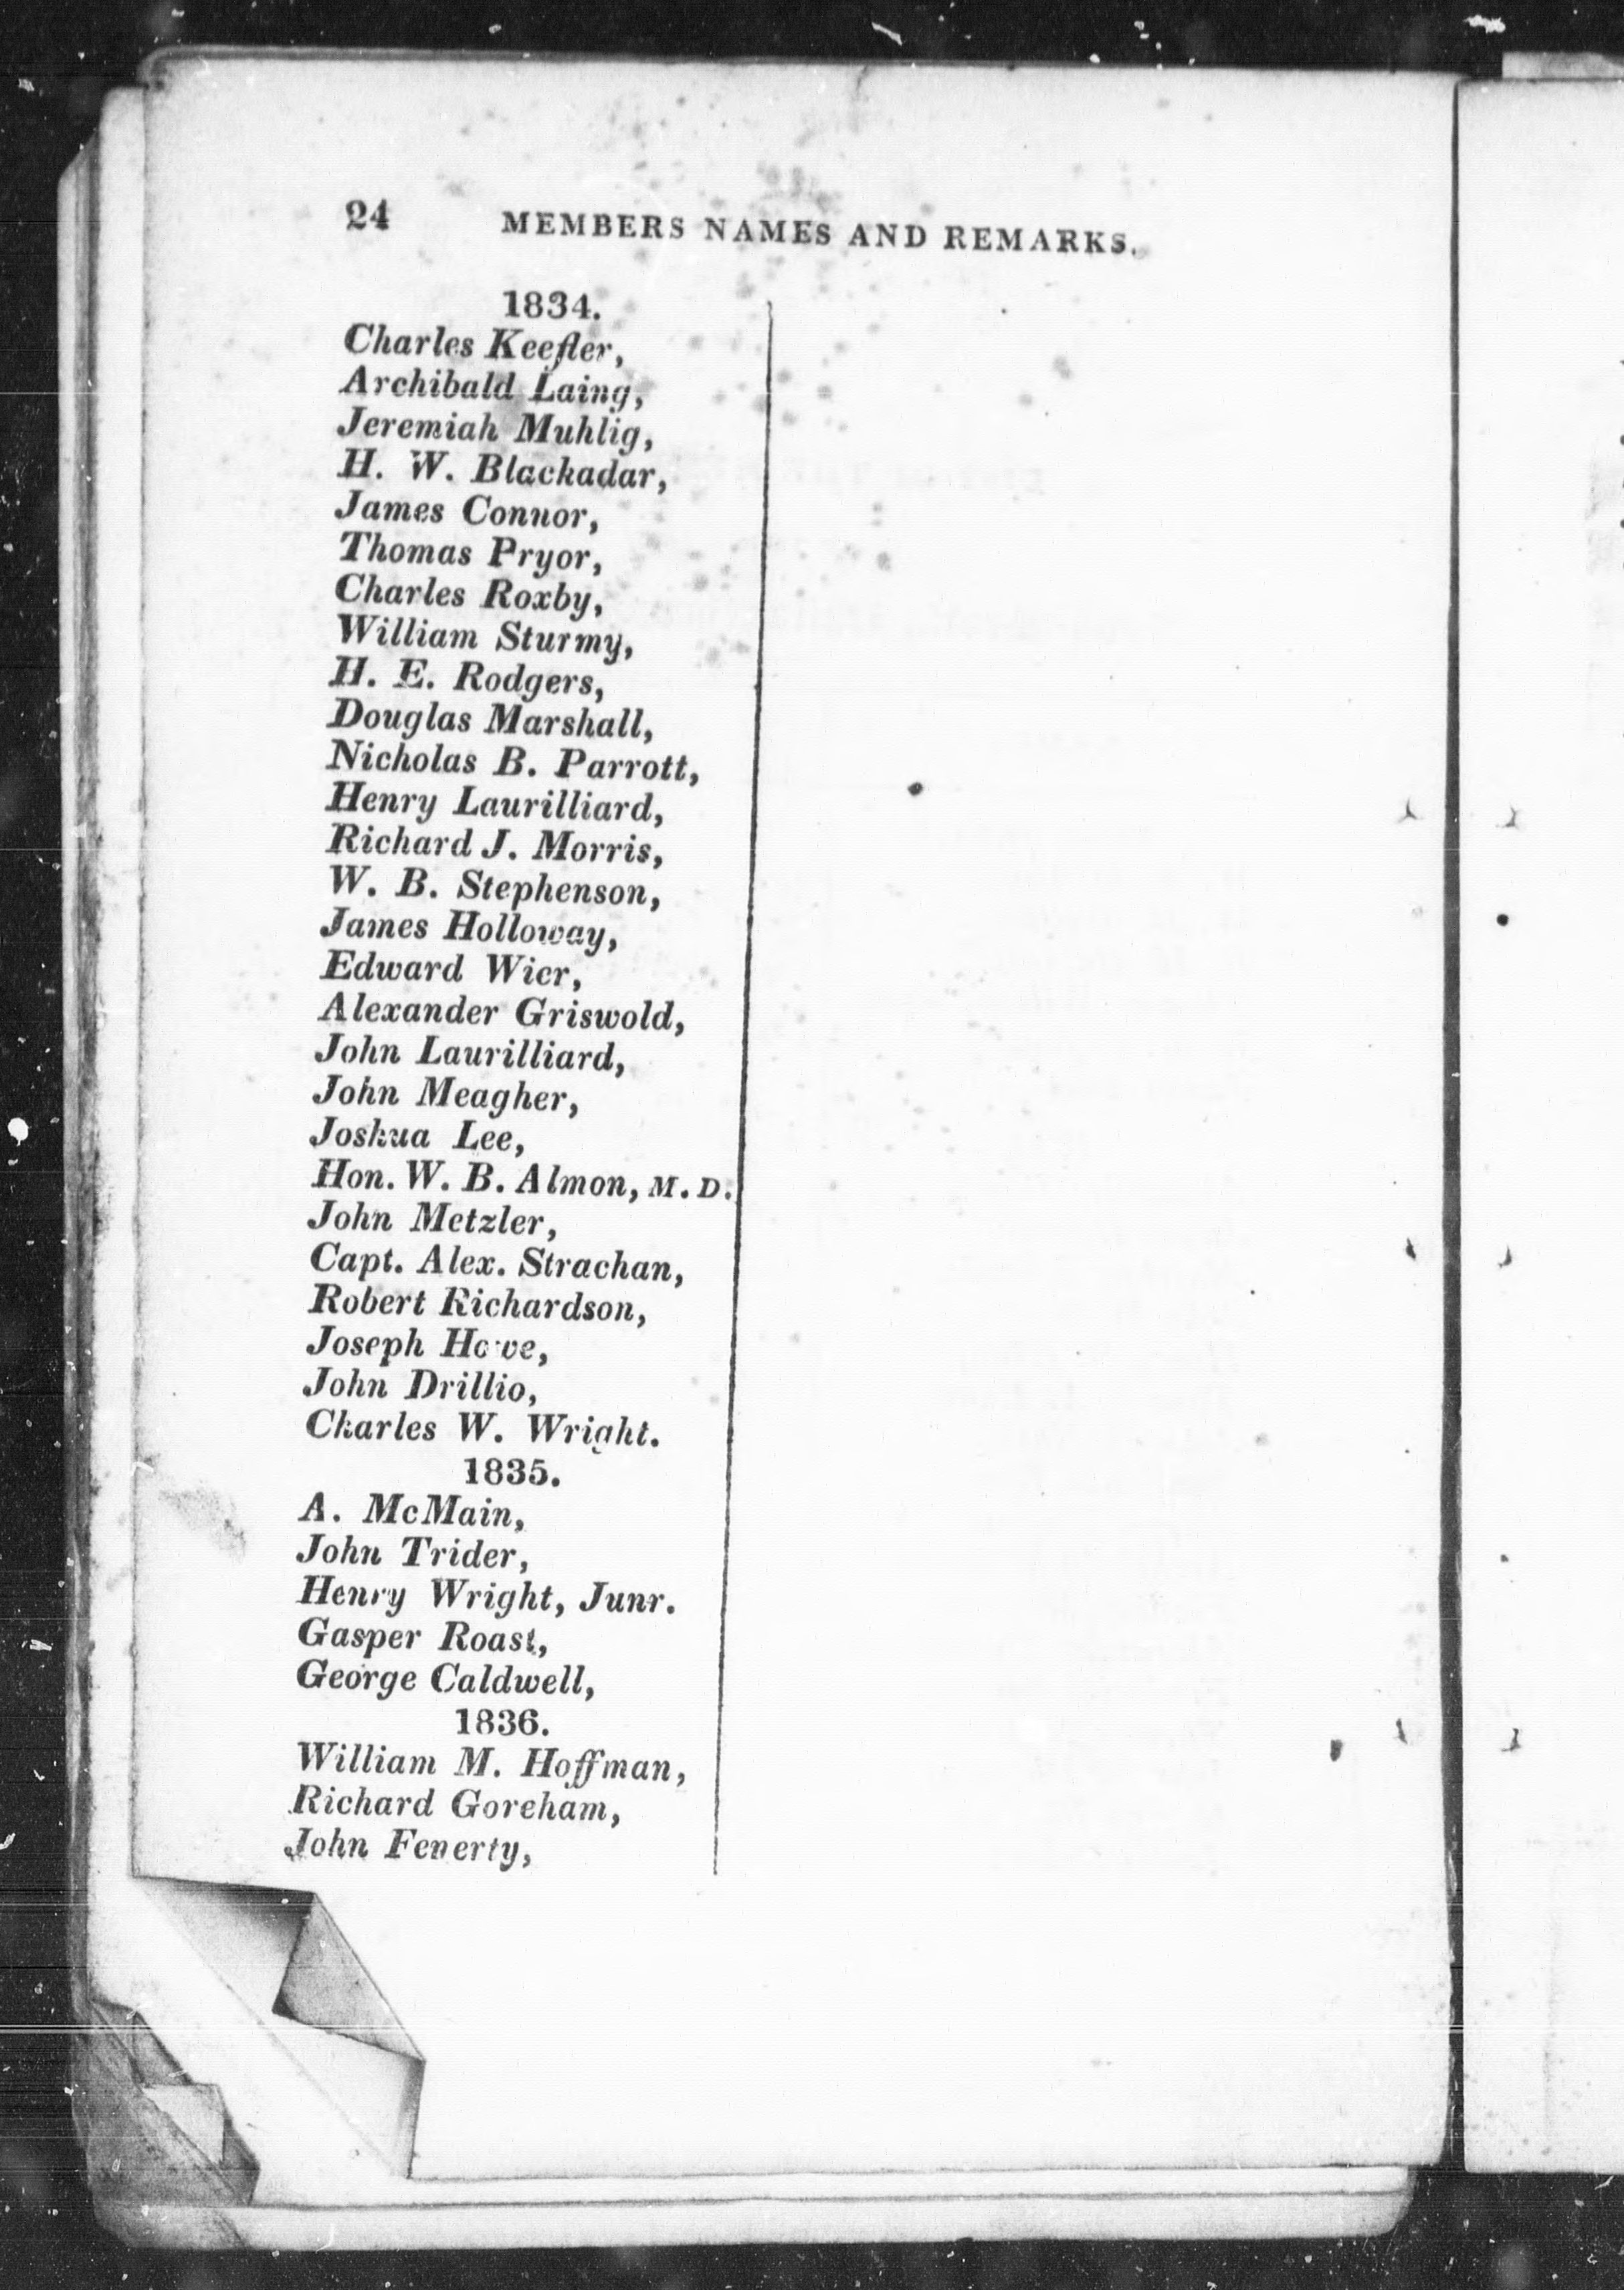 24 MEMBERS NAMES AND REMARKS.
1834.
Charles Keefler,
Archibald Laing,
Jeremiah Muhlig,
H. W. Blackadar,
James Connor,
Thomas Pryor,
Charles Roxby,
William Sturmy,
H. E. Rodgers,
Douglas Marshall,
Nicholas B. Parrott,
Henry Laurilliard,
Richard J. Morris,
W. B. Stephenson,
James Holloway,
Edward Wier,
Alexander Griswold,
John Laurilliard,
John Meagher,
Joshua Lee,
Hon. W. B. Almon, M. D.
John Metzler,
Capt. Alex. Strachan,
Robert Richardson,
Joseph Howe,
John Drillio,
Charles W. Wright.
1835.
A. McMain,
John Trider,
Henry Wright, Junr.
Gasper Roast,
George Caldwell,
1836.
William M. Hoffman,
Richard Goreham,
John Fenerty,